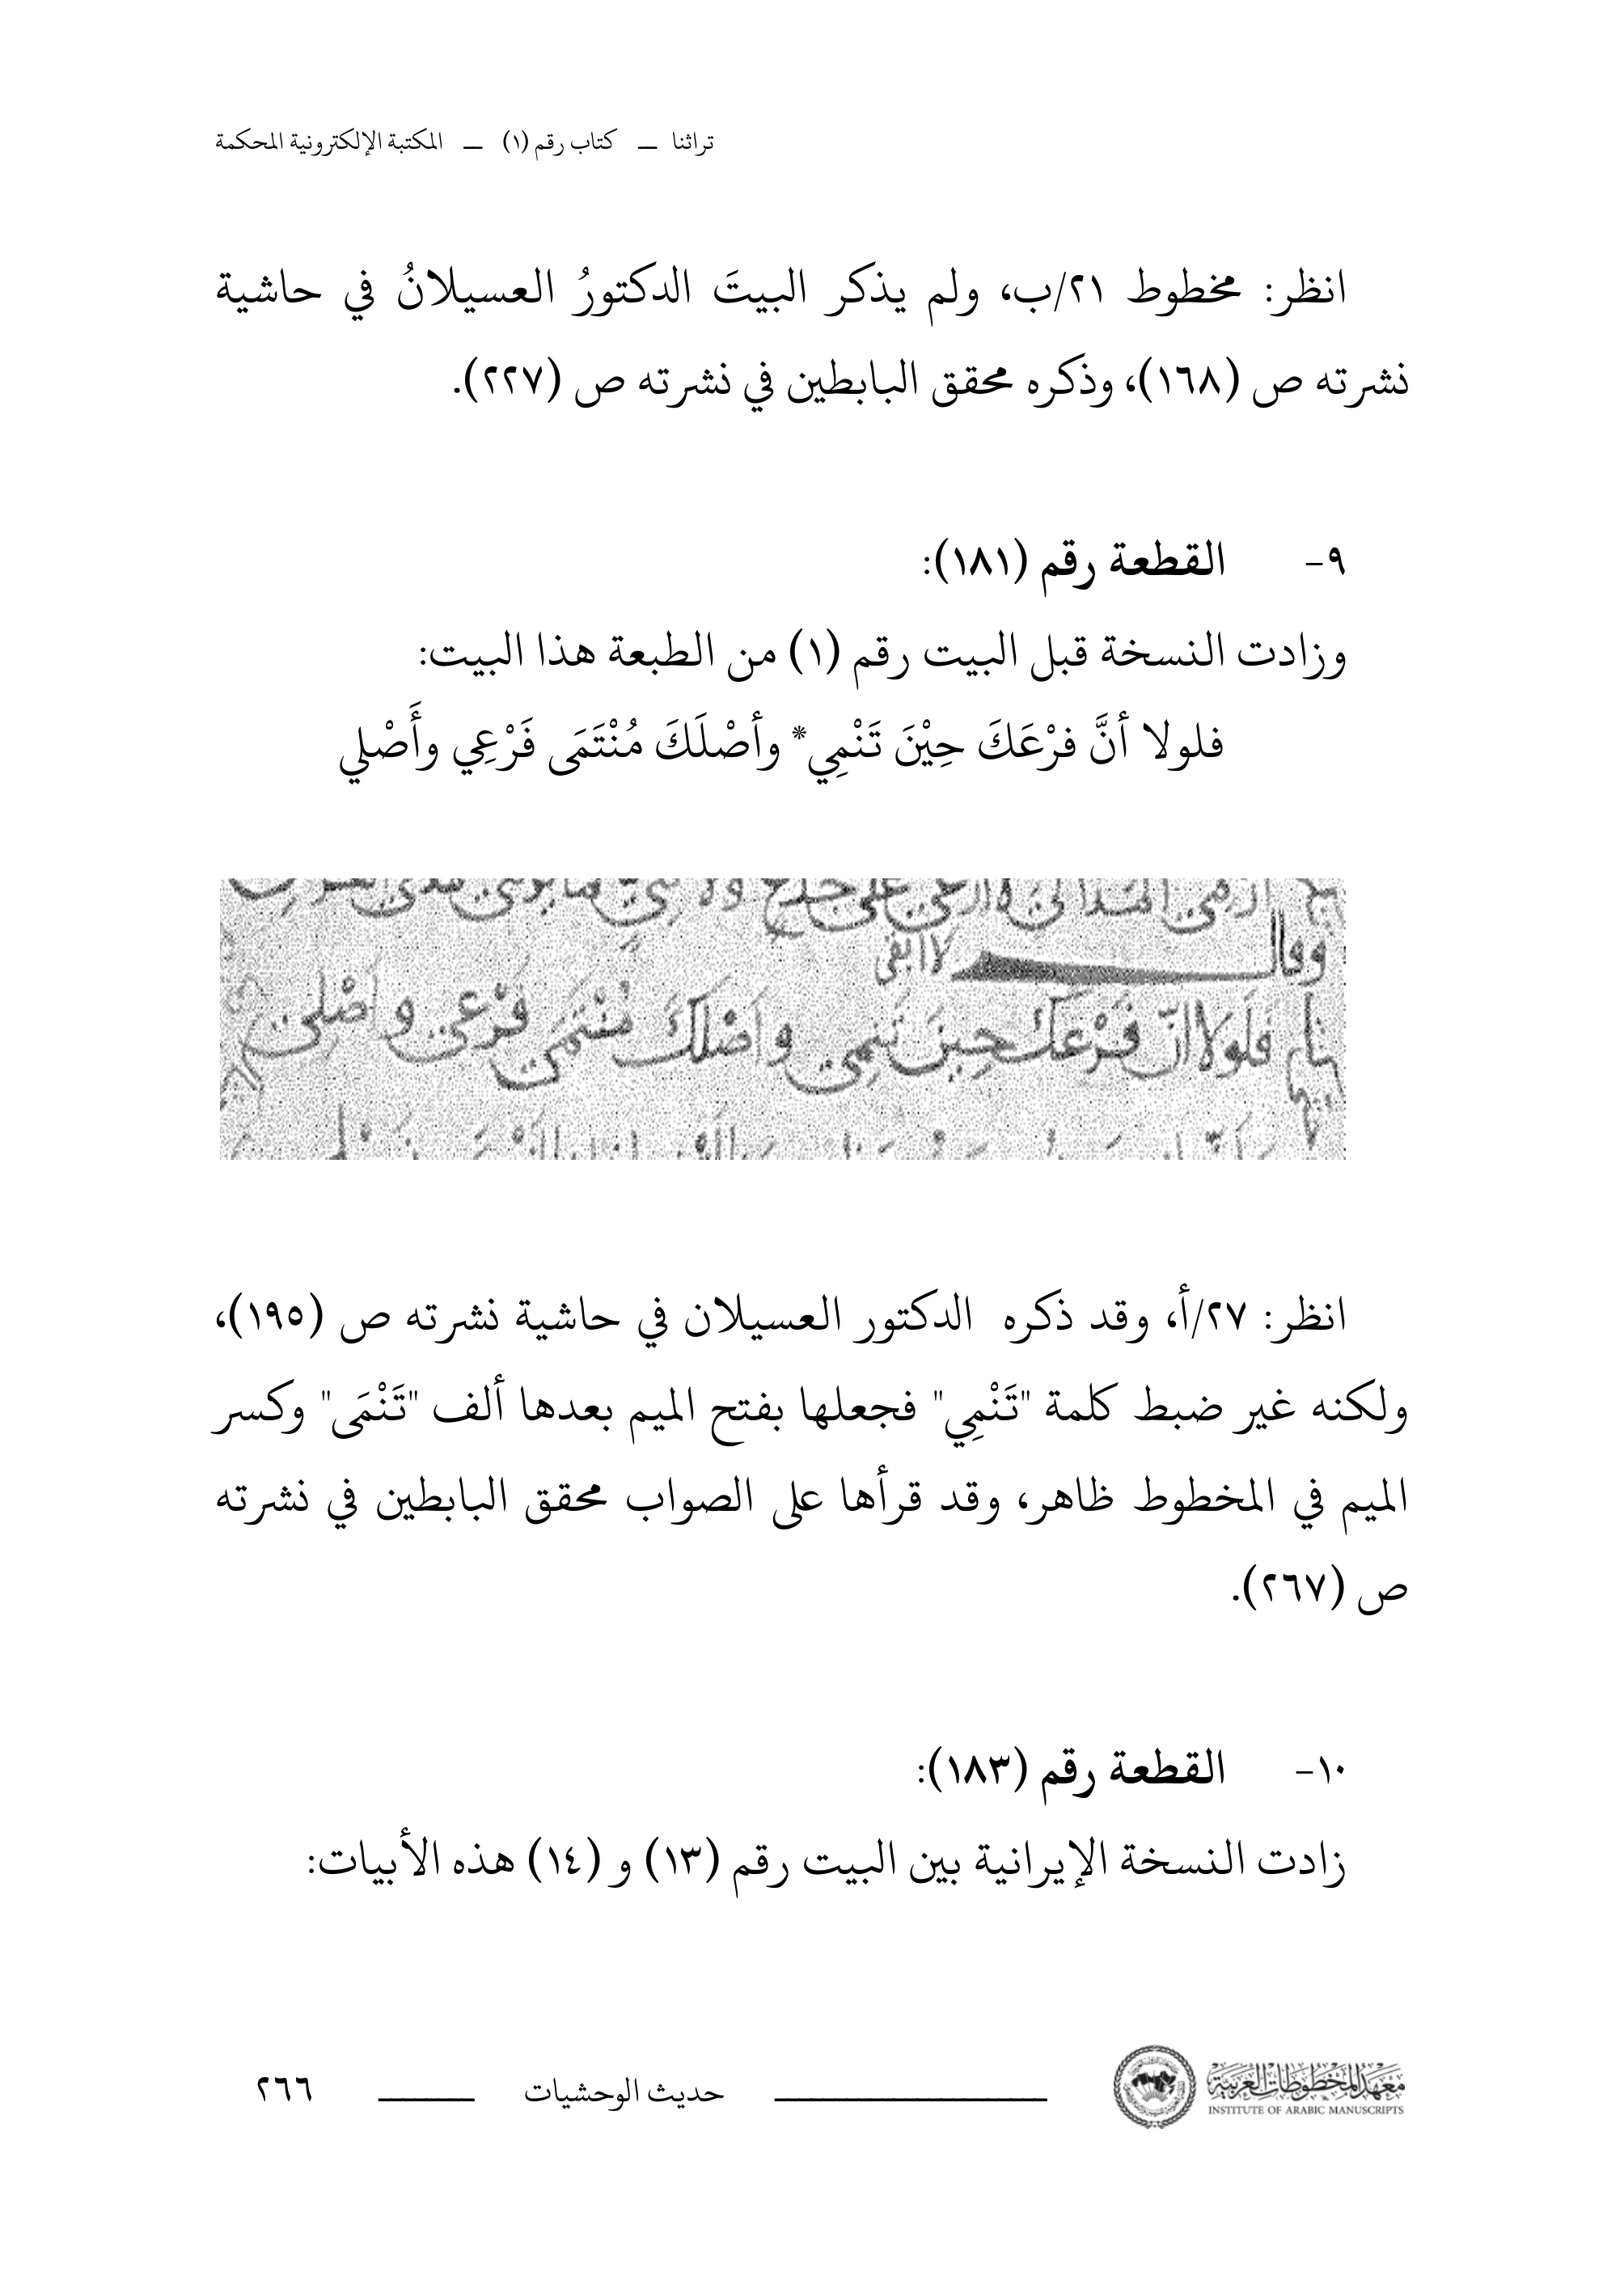 تراثنا — كتاب رقم (١) — المكتبة الإلكترونية المحكمة
انظر: مخطوط ٢١/ب، ولم يذكر البيتَ الدكتورُ العسيلانُ في حاشية
نشرته ص (١٦٨)، وذكره محقق البابطين في نشرته ص (٢٢٧).
٩- القطعة رقم (١٨١):
وزادت النسخة قبل البيت رقم (١) من الطبعة هذا البيت:
فلولا أنَّ فرْعَكَ حِيْنَ تَنْمِي* وأصْلَكَ مُنْتَمَى فَرْعِي وأَصْلي
وقال
فَلَولا انّ فَرْعَكَ حِينَ تَنمِى واَصْلكَ مُنْتمَى فَرْعى واَصْلِى
انظر: ٢٧/أ، وقد ذكره الدكتور العسيلان في حاشية نشرته ص (١٩٥)،
ولكنه غير ضبط كلمة "تَنْمِي" فجعلها بفتح الميم بعدها ألف "تَنْمَى" وكسر
الميم في المخطوط ظاهر، وقد قرأها على الصواب محقق البابطين في نشرته
ص (٢٦٧).
١٠- القطعة رقم (١٨٣):
زادت النسخة الإيرانية بين البيت رقم (١٣) و (١٤) هذه الأبيات:
معهد المخطوطات العربية
INSTITUTE OF ARABIC MANUSCRIPTS
حديث الوحشيات
٢٦٦